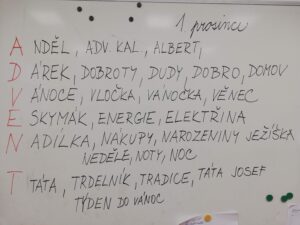 1 prosince
ANDĚL, ADV. KAL., ALBERT,
DÁREK, DOBROTY, DUDY, DOBRO, DOMOV
VÁNOCE, VLOČKA, VÁNOČKA, VĚNEC
ESKYMÁK, ENERGIE, ELEKTŘINA
NADÍLKA, NÁKUPY, NAROZENINY JEŽÍŠKA
NEDĚLE, NOTY, NOC
TÁTA, TRDELNÍK, TRADICE, TÁTA JOSEF
TÝDEN DO VÁNOC